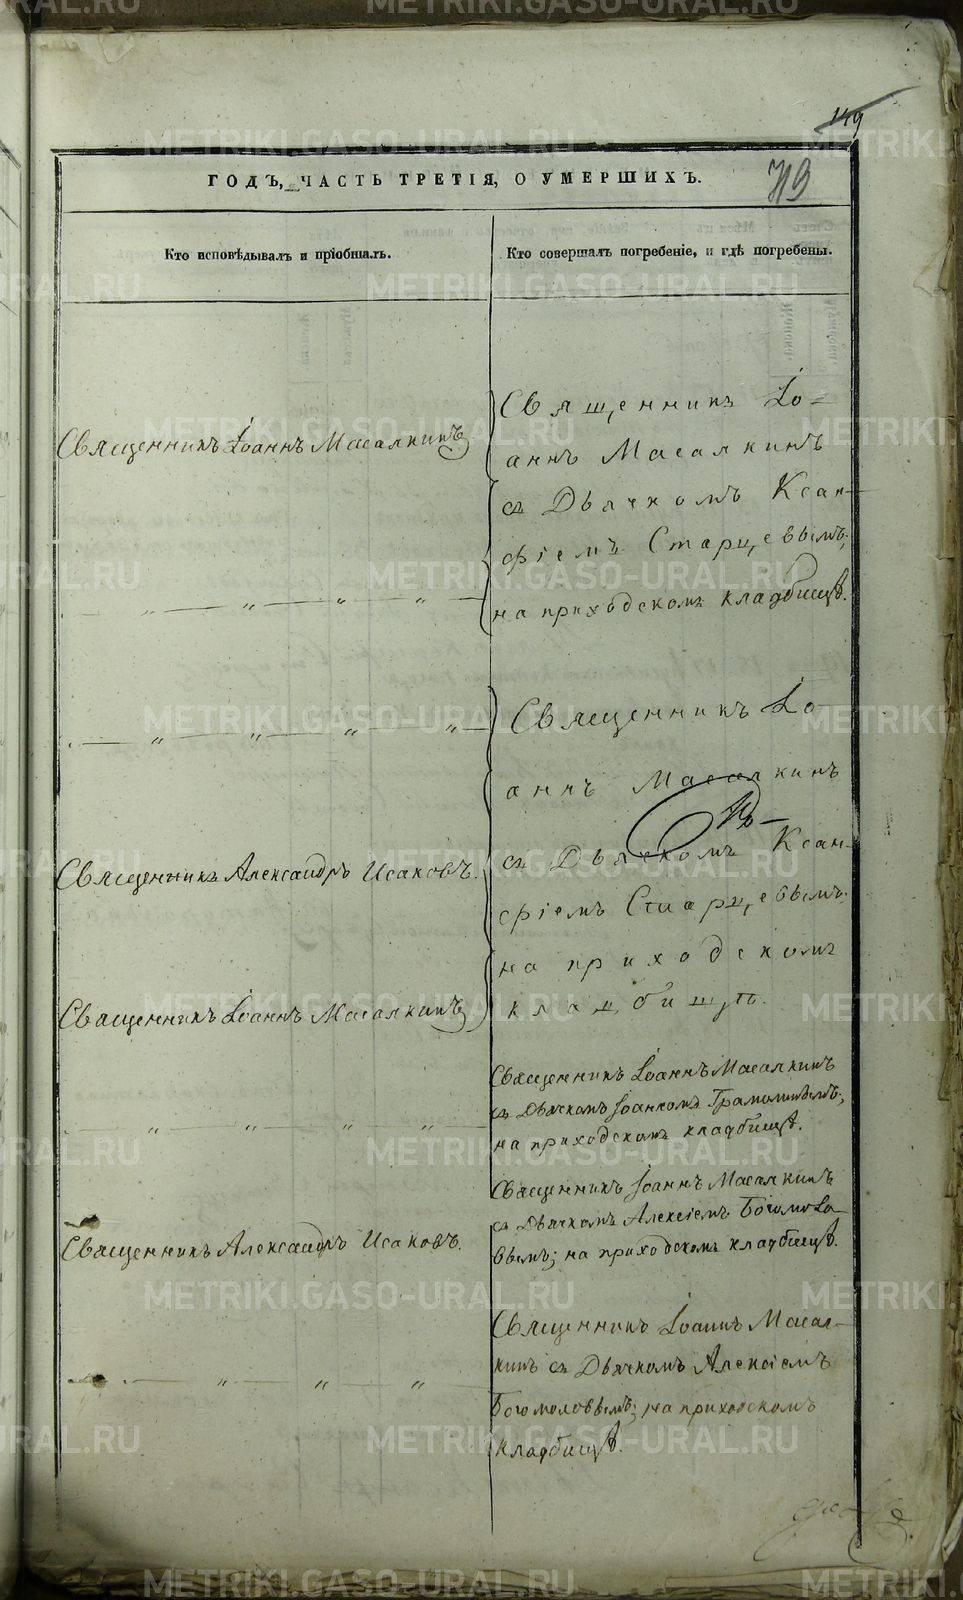 149
ГОДЪ, ЧАСТЬ ТРЕТІЯ, О УМЕРШИХЪ.
Кто исповѣдывалъ и пріобщалъ.
Кто совершалъ погребеніе, и гдѣ погребены.
Священникъ Іоаннъ Масалкинъ
Священникъ Іо-
аннъ Масалкинъ
съ Дьячкомъ Ксан-
фіемъ Старцевымъ;
на приходскомъ кладбищѣ.
Священникъ Іо-
аннъ Масалкинъ
съ Дьячкомъ Ксан-
фіемъ Старцевымъ;
на приходскомъ
кладбищѣ.
Священникъ Александръ Исаковъ.
Священникъ Іоаннъ Масалкинъ
Священникъ Іоаннъ Масалкинъ
съ Дьячкомъ Іоанномъ
на приходскомъ кладбищѣ.
Священникъ Іоаннъ Масалкинъ
съ Дьячкомъ Алексіемъ Богомоло-
вымъ; на приходскомъ кладбищѣ.
Священникъ Александръ Исаковъ.
Священникъ Іоаннъ Масал-
кинъ съ Дьячкомъ Алексіемъ
Богомоловымъ; на приходскомъ
кладбищѣ.
METRIKI.GASO-URAL.RU